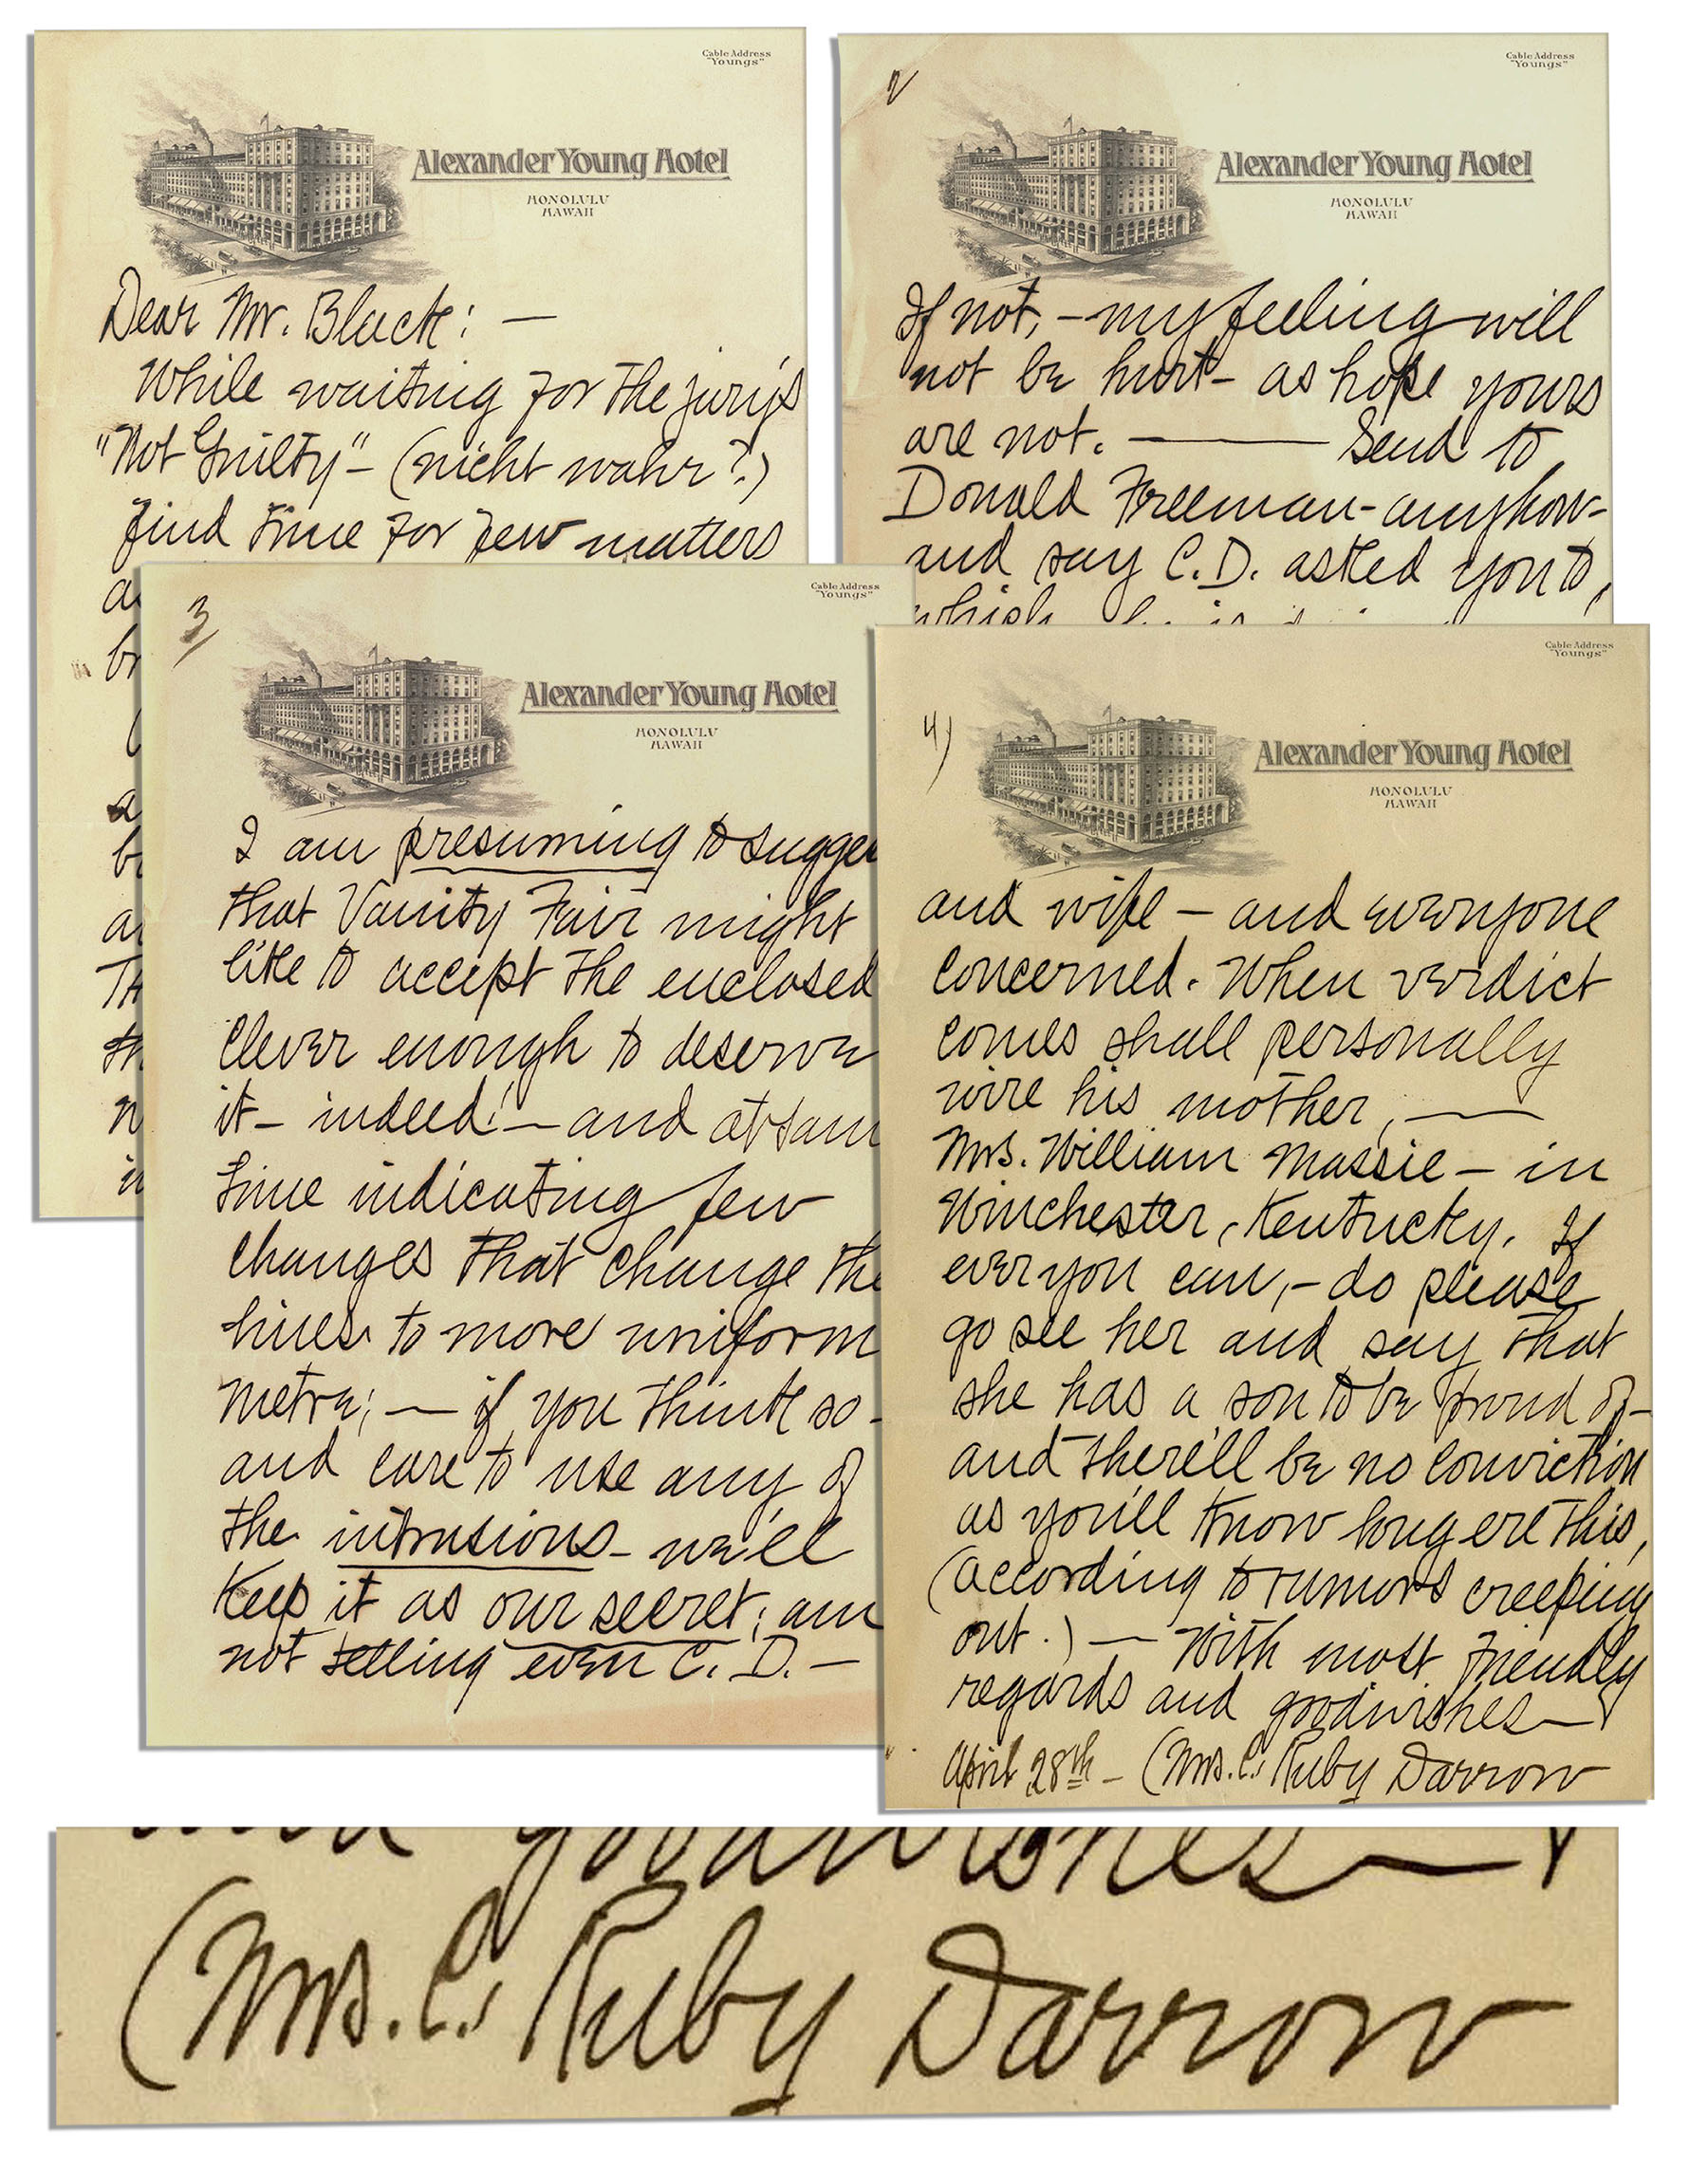 Cable Address
"Youngs"
Alexander Young Hotel
HONOLULU
HAWAII
Dear Mr. Black: —
While waiting for the jury's
"Not Guilty" – (nicht wahr?)
find time for few matters
2
Cable Address
"Youngs"
Alexander Young Hotel
HONOLULU
HAWAII
If not, – my feeling will
not be hurt – as hope yours
are not. — Send to
Donald Freeman – anyhow –
and say C.D. asked you to,
which he is
3
Cable Address
"Youngs"
Alexander Young Hotel
HONOLULU
HAWAII
I am presuming to sugges
that Vanity Fair might
like to accept the enclosed
clever enough to deserve
it – indeed! – and at sam
time indicating few
changes that change the
lines to more uniform
metre; — if you think so –
and care to use any of
the intrusions – we'll
keep it as our secret; am
not telling even C. D. —
4)
Cable Address
"Youngs"
Alexander Young Hotel
HONOLULU
HAWAII
and wife – and everyone
concerned. When verdict
comes shall personally
wire his mother, —
Mrs. William Massie – in
Winchester, Kentucky. If
ever you can, – do please
go see her and say that
she has a son to be proud of –
and there'll be no conviction
as you'll know long ere this,
(according to rumors creeping
out.) — With most friendly
regards and goodwishes —
April 28th – (Mrs. C.) Ruby Darrow
and goodwishes —
(Mrs. C.) Ruby Darrow